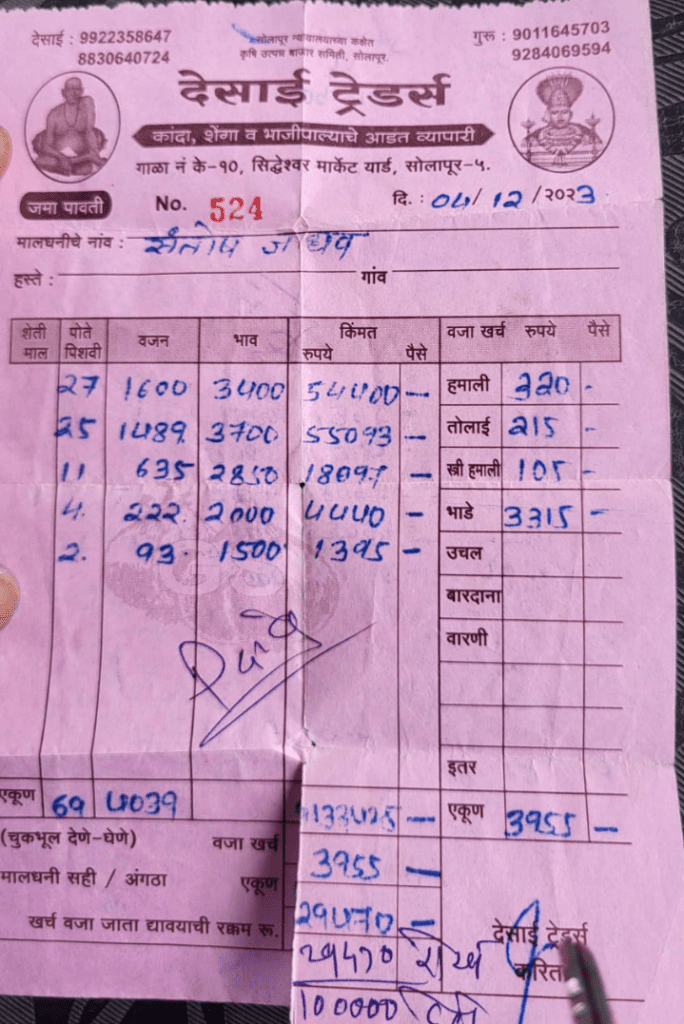 देसाई : 9922358647
8830640724
सोलापूर न्यायालयाच्या कक्षेत
कृषि उत्पन्न बाजार समिती, सोलापूर.
गुरू : 9011645703
9284069594
देसाई ट्रेडर्स
कांदा, शेंगा व भाजीपाल्याचे आडत व्यापारी
गाळा नं के-१०, सिद्धेश्वर मार्केट यार्ड, सोलापूर-५.
जमा पावती No. 524 दि. : 04/12/२०२3
मालधनीचे नांव : संतोष जाधव
हस्ते : गांव
शेती माल पोते पिशवी वजन भाव किंमत रुपये पैसे वजा खर्च रुपये पैसे
27 1600 3400 54400 — हमाली 320 -
25 1489 3700 55093 — तोलाई 215 -
11 635 2850 18097 — स्त्री हमाली 105 -
4. 222. 2000 4440 — भाडे 3315 —
2. 93. 1500 1395 — उचल
बारदाना
वारणी
इतर
एकूण 69 4039 133425 — एकूण 3955 —
(चुकभूल देणे-घेणे) वजा खर्च 3955 —
मालधनी सही / अंगठा एकूण
खर्च वजा जाता द्यावयाची रक्कम रू. 29470 —
देसाई ट्रेडर्स
करिता
29470 रोख
100000